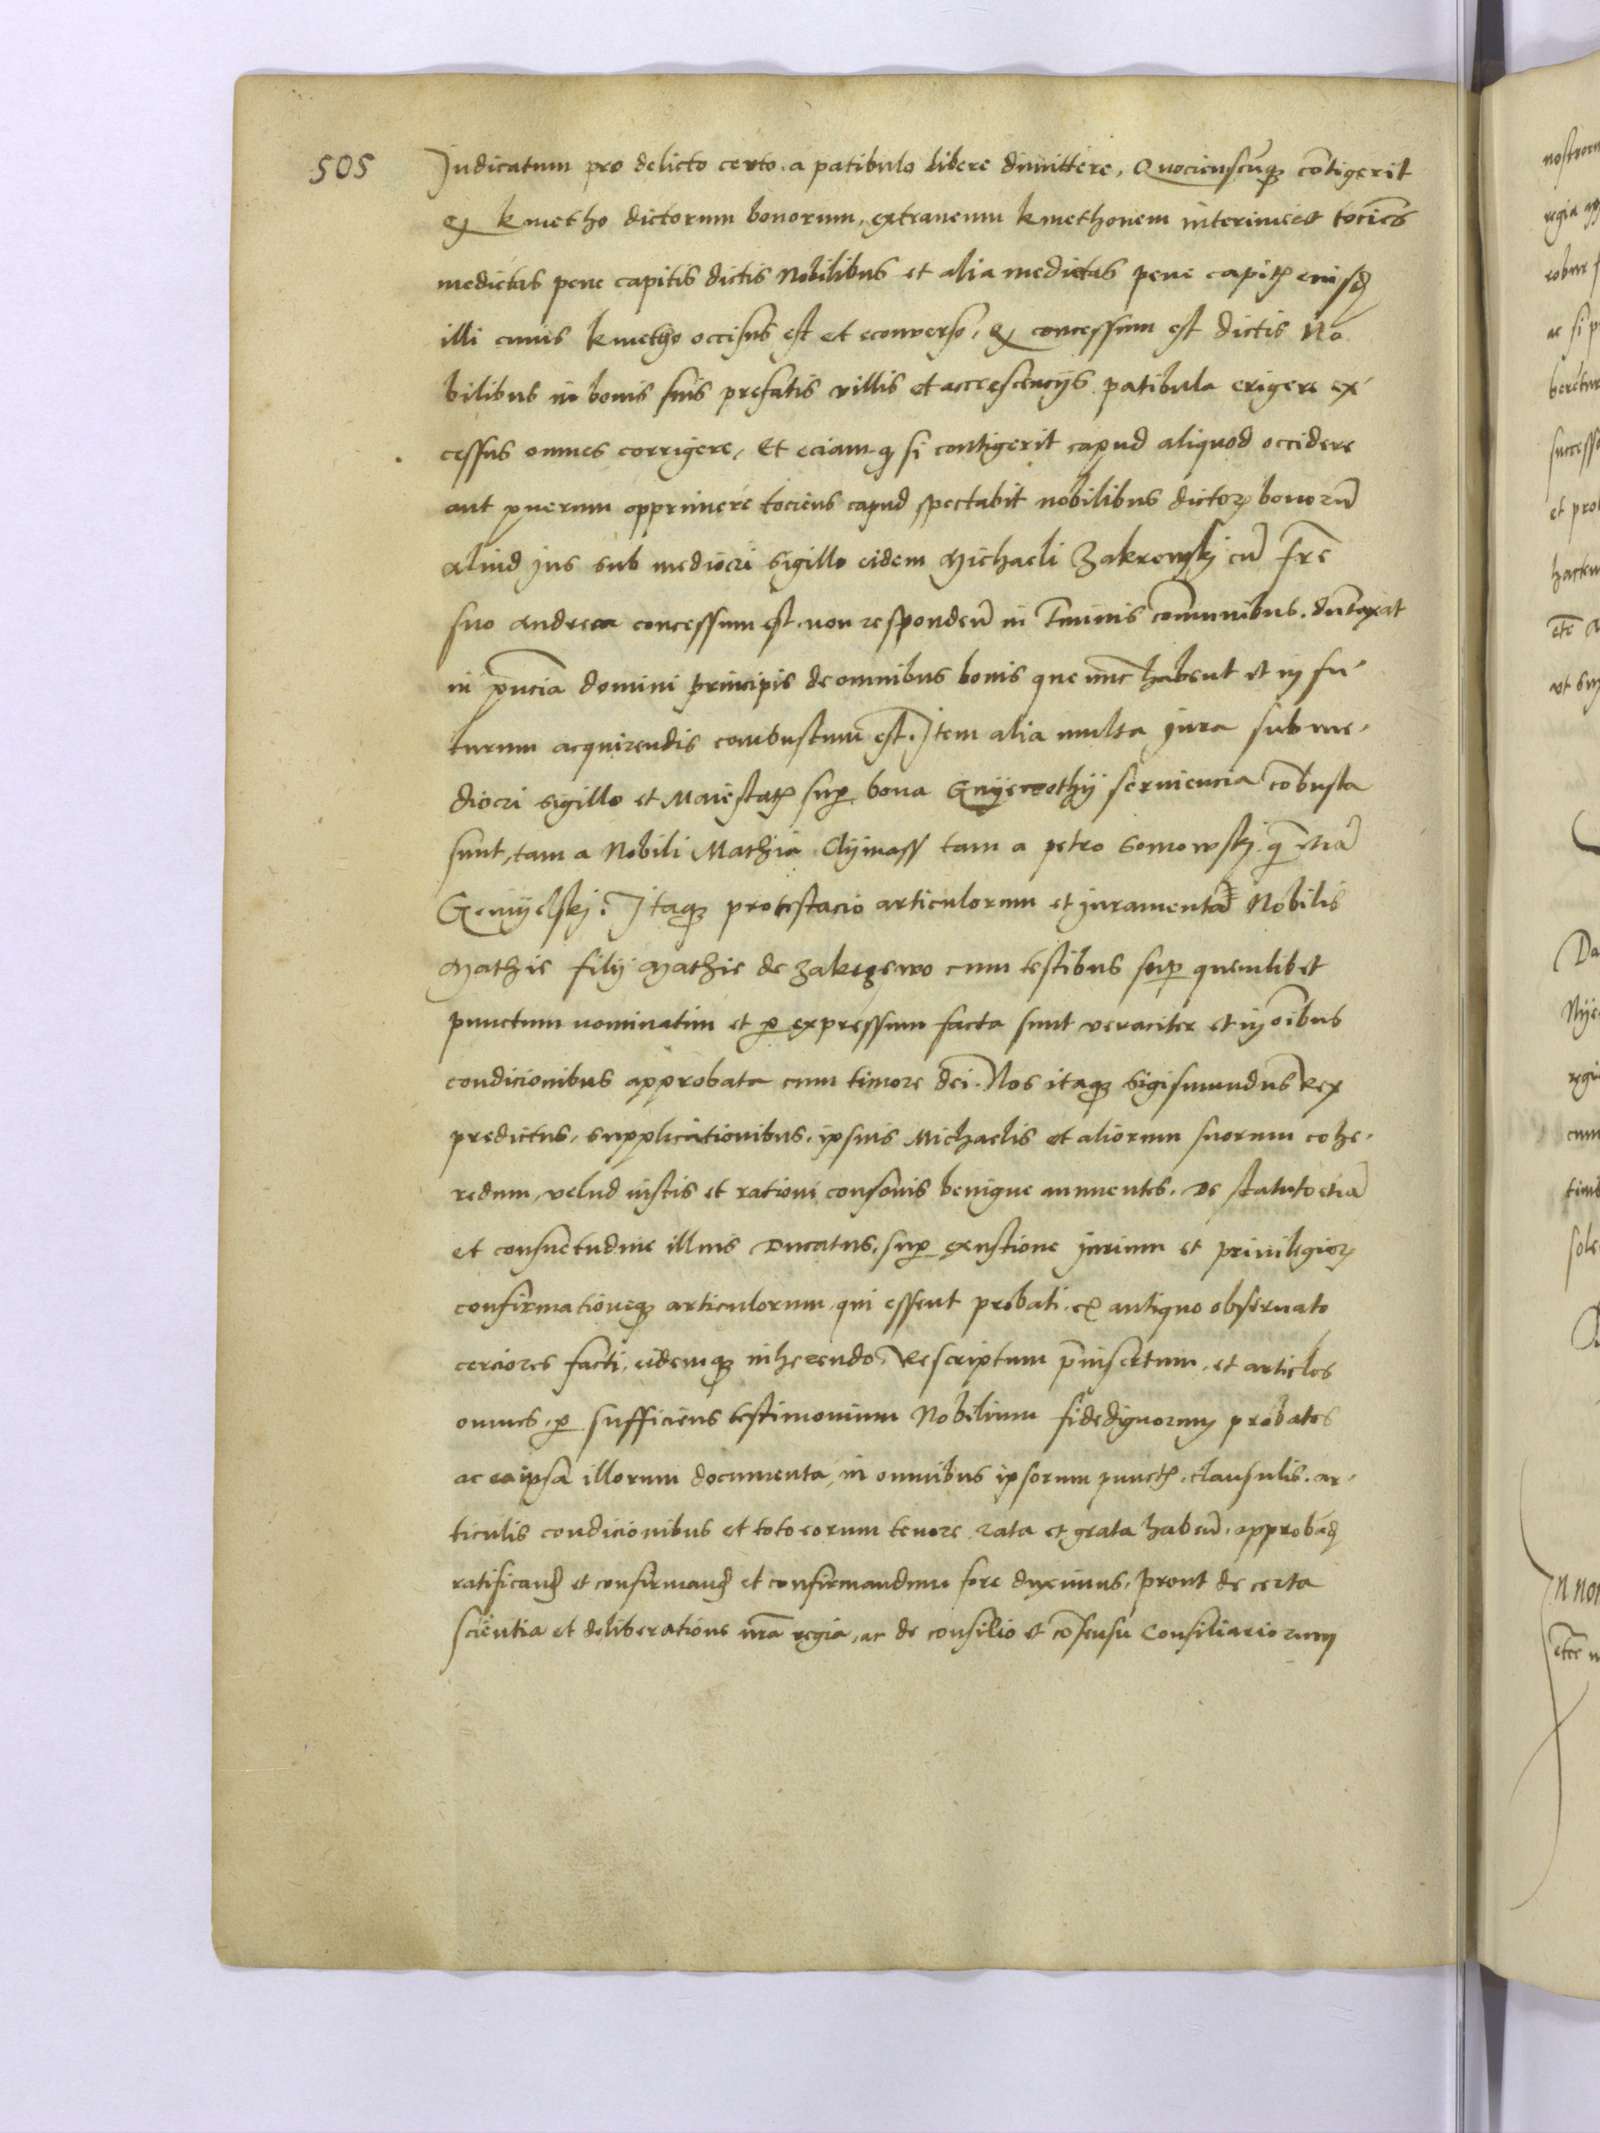 505
Judicatum pro delicto certo. a patibulo libere dimittere, Quocienscūqꝫ cōtigerit
ꝙ kmetho dictorum bonorum, extraneum kmethonem interimeret tociēs
medietas pene capitis dictis Nobilibus et alia medietas pene capitꝭ eiusdꝫ
illi cuius kmetho occisus est et econverso, ꝙ concessum est dictis No
bilibus in bonis suis prefatis villis et accrescencijs patibula erigere ex-
cessus omnes corrigere, Et eciam ꝙ si contigerit capud aliquod occidere
aut puerum opprimere tociens capud spectabit nobilibus dictoꝝ bonorū
Aliud jus sub mediocri sigillo eidem Michaeli Zakrewskj cū frē
suo Andrea concessum est. non respondeñ in t̄minis com̄unibus. dūtaxat
in p̄ncia domini principis de omnibus bonis que nūc habent et in fu-
turum acquirendis combustum est. Item alia multa jura sub me-
diocri sigillo et Maiestatꝭ sup bona Gnyewothy serviencia cōbusta
sunt, tam a Nobili Mathia Clymass tam a petro Gomowskj qm̄ etiā
Gemyelskj. Itaqꝫ protestacio articulorum et juramenta Nobilis
Mathie filij Mathie de Zakrzewo cum testibus sup quemlibet
punctum nominatim et ꝑ expressum facta sunt veraciter et in oībus
condicionibus approbata cum timore dei. Nos itaqꝫ Sigismundus Rex
predictus, supplicationibus. ipsius Michaelis et aliorum suorum cohe-
redum, velud iustis et rationi consonis benigne annuentes. De statuto etiā
et consuetudine illius Ducatus, sup exustione jurium et privilegioꝝ
confirmationeqꝫ articulorum. qui essent probati. ex antiquo observato
cerciores facti, eidemqꝫ inherendo, Rescriptum p̄insertum, et articlos
omnes, ꝑ sufficiens testimonium Nobilium fidedignorum probatos
ac ea ipsa illorum documenta, in omnibus ipsorum punctꝭ. clausulis. ar-
ticulis condicionibus et toto eorum tenore rata et grata habeñ, approbañd
ratificand et confirmand et confirmandum fore duximus, prout de certa
scientia et deliberatione nr̄a regia, ac de consilio et cōsensu Consiliariorum